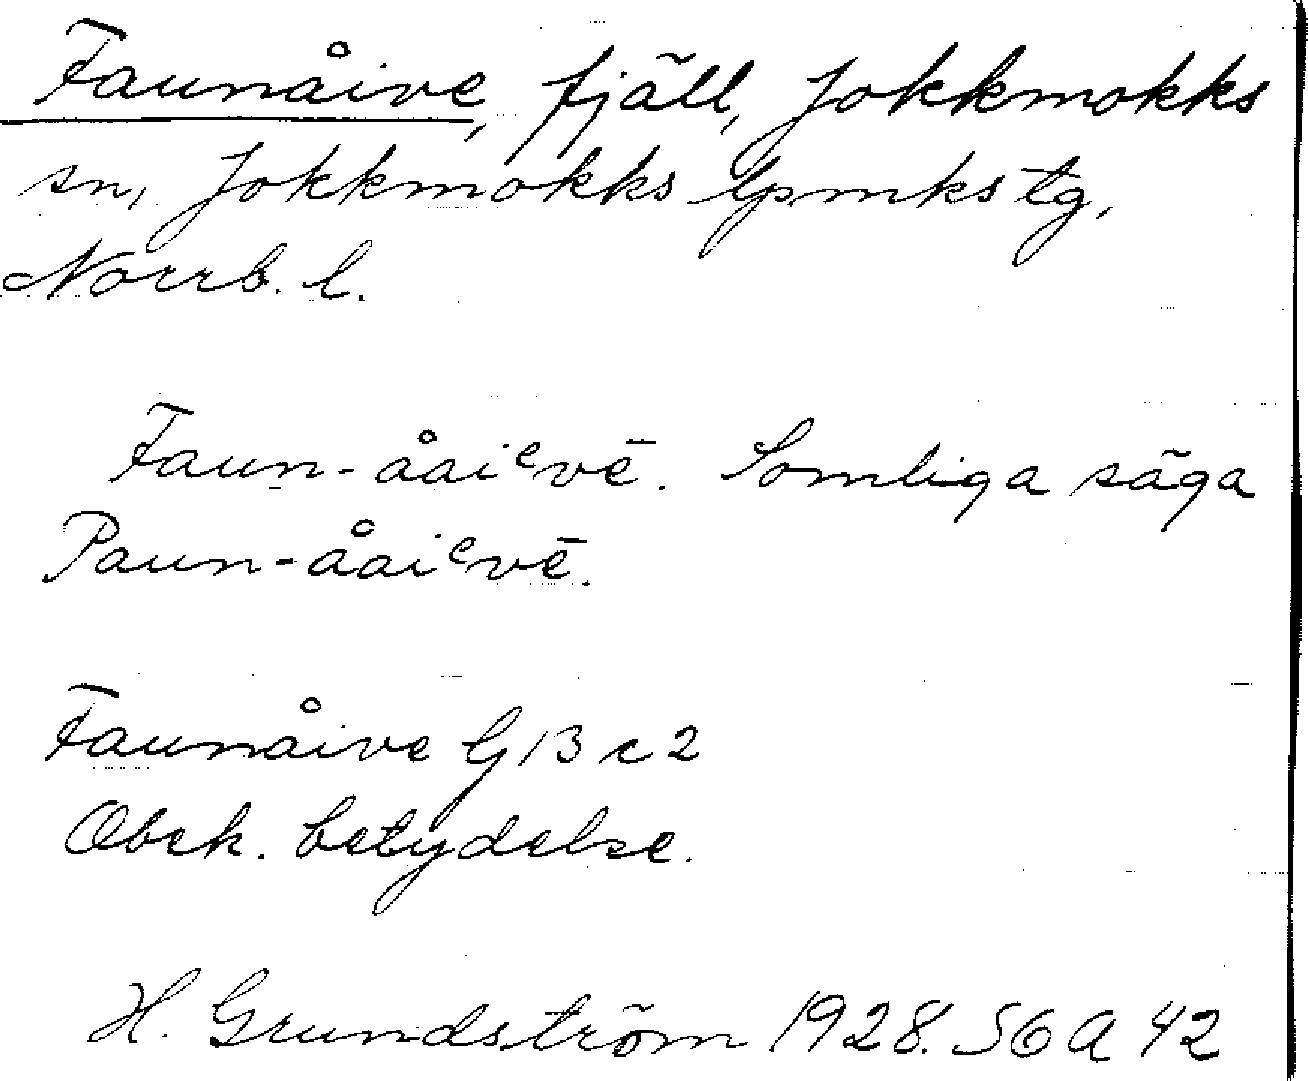 Faunåive, fjäll, Jokkmokks
sn, Jokkmokks lpmks tg,
Norrb. l.
Faun-åaiᵉvē. Somliga säga
Paun-åaiᵉvē.
Faunåive G 13 c 2
Obek. betydelse.
H. Grundström 1928. 56 A 42